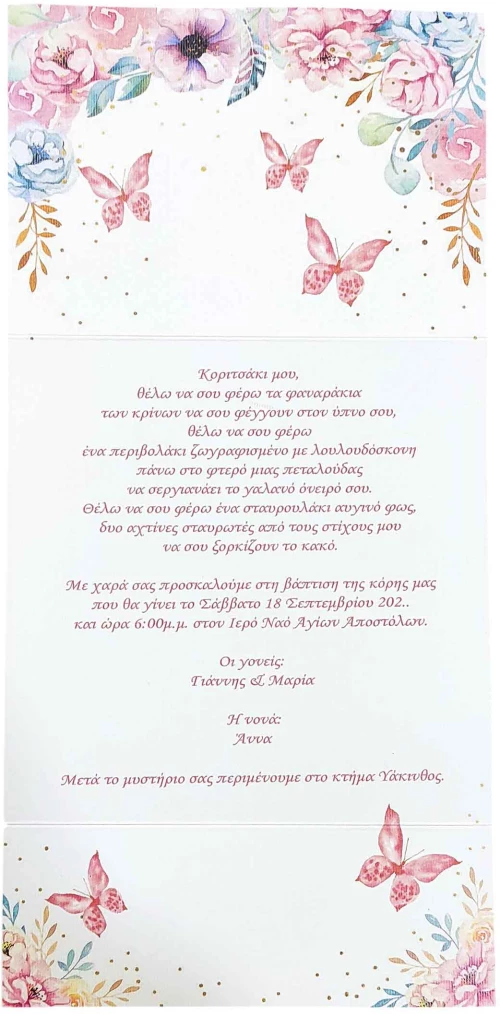 Κοριτσάκι μου,
θέλω να σου φέρω τα φαναράκια
των κρίνων να σου φέγγουν στον ύπνο σου,
θέλω να σου φέρω
ένα περιβολάκι ζωγραφισμένο με λουλουδόσκονη
πάνω στο φτερό μιας πεταλούδας
να σεργιανάει το γαλανό όνειρό σου.
Θέλω να σου φέρω ένα σταυρουλάκι αυγινό φως,
δυο αχτίνες σταυρωτές από τους στίχους μου
να σου ξορκίζουν το κακό.
Με χαρά σας προσκαλούμε στη βάπτιση της κόρης μας
που θα γίνει το Σάββατο 18 Σεπτεμβρίου 202..
και ώρα 6:00μ.μ. στον Ιερό Ναό Αγίων Αποστόλων.
Οι γονείς:
Γιάννης & Μαρία
Η νονά:
Άννα
Μετά το μυστήριο σας περιμένουμε στο κτήμα Υάκινθος.